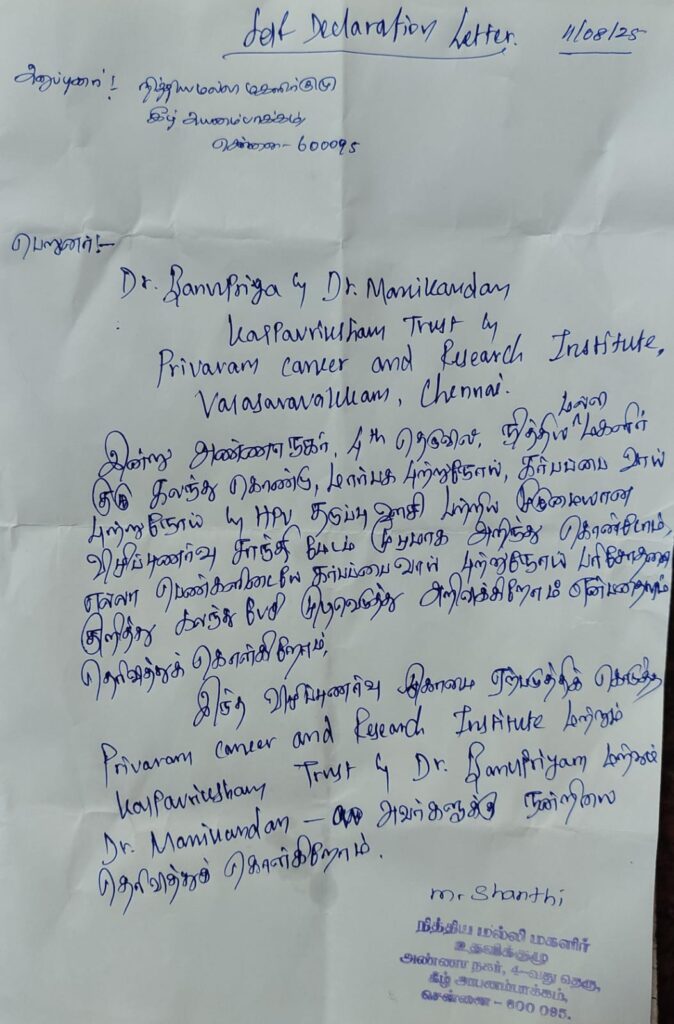 Self Declaration Letter. 11/08/25
அனுப்புனர்!
நித்தியமல்லி மகளிர்குழு
கீழ் அயனம்பாக்கம்,
சென்னை - 600095
பெறுனர்!-
Dr. BanuPriya & Dr. Manikandan
KalPavriksham Trust &
Privaram Cancer and Research Institute,
Valasaravakkam, Chennai.
இன்று அண்ணாநகர், 4th தெருவில், நித்திய மல்லி மகளிர்
குழு கலந்து கொண்டு, மார்பக புற்றுநோய், கர்பப்பை வாய்
புற்றுநோய் & HPV தடுப்பு ஊசி பற்றிய முழுமையான
விழிப்புணர்வு சாந்தி மேடம் மூலமாக அறிந்து கொண்டோம்,
எல்லா பெண்களிடையே கர்பப்பைவாய் புற்றுநோய் பரிசோதனை
குறித்து கலந்து பேசி முடிவெடுத்து அறிவிக்கிறோம் என்பதையும்
தெரிவித்துக் கொள்கிறோம்.
இந்த விழிப்புணர்வு முகாமை ஏற்படுத்திக் கொடுத்த
Privaram Cancer and Research Institute மற்றும்
KalPavriksham Trust & Dr. BanuPriyan மற்றும்
Dr. Manikandan - அவர்களுக்கு நன்றியை
தெரிவித்துக் கொள்கிறோம்.
mr Shanthi
நித்திய மல்லி மகளிர்
உதவிக்குழு
அண்ணா நகர், 4-வது தெரு,
கீழ் அயனம்பாக்கம்,
சென்னை - 600 095.